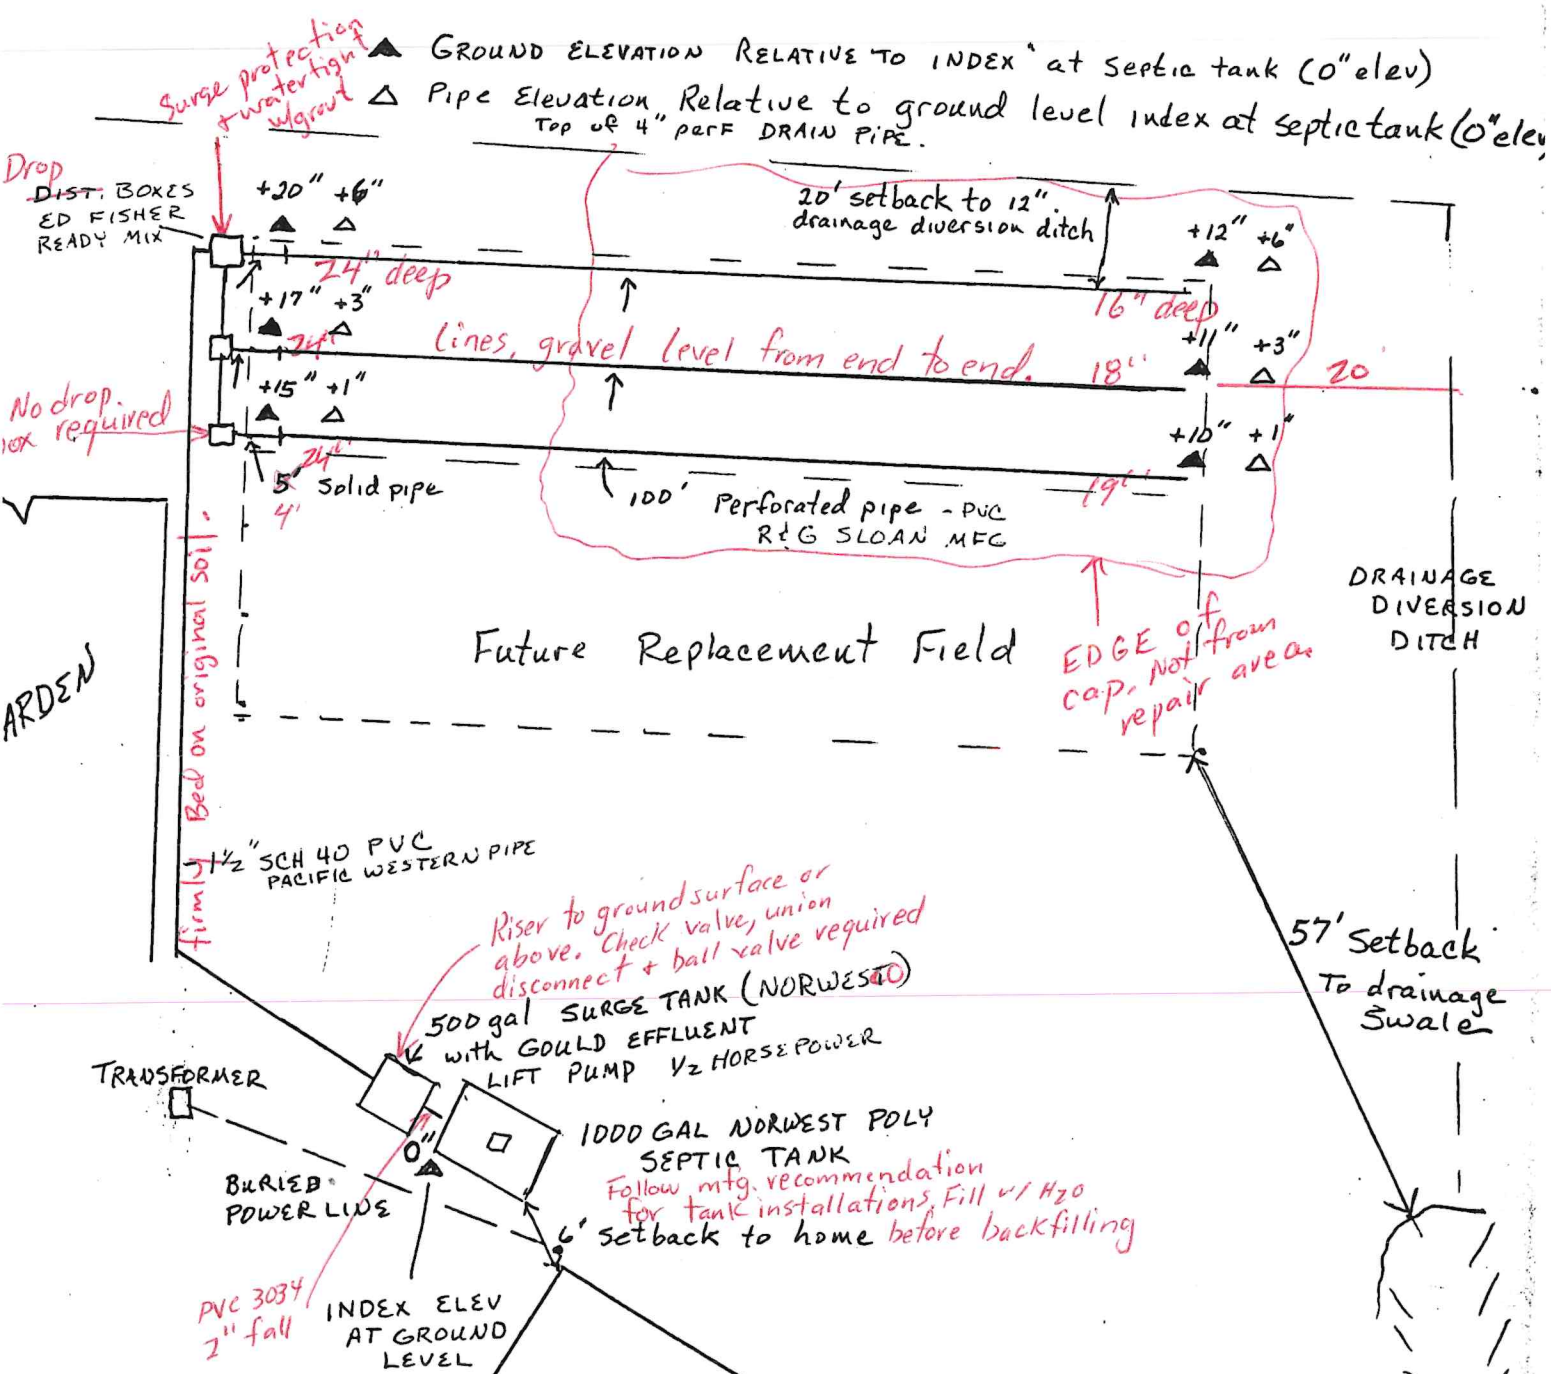 Surge protection
+ watertight
w/grout
▲ GROUND ELEVATION RELATIVE TO INDEX" at septic tank (0" elev)
△ Pipe Elevation Relative to ground level index at septic tank (0" elev
Top of 4" perf DRAIN PIPE.
Drop
DIST. BOXES
ED FISHER
READY MIX
+20" +6"
20' setback to 12"
drainage diversion ditch
+12" +6"
24" deep
16" deep
+17" +3"
+11" +3"
24"
lines, gravel level from end to end.
18"
20'
+15" +1"
+10" +1"
No drop.
box required
24"
19"
5' Solid pipe
4'
100' Perforated pipe - PVC
R&G SLOAN MFG
DRAINAGE
DIVERSION
DITCH
Future Replacement Field
EDGE of
cap. Not from
repair area
ARDEN
firmly Bed on original soil.
1½" SCH 40 PVC
PACIFIC WESTERN PIPE
Riser to ground surface or
above. Check valve, union
disconnect + ball valve required
57' Setback
To drainage
Swale
500 gal SURGE TANK (NORWESCO)
with GOULD EFFLUENT
LIFT PUMP ½ HORSEPOWER
TRANSFORMER
0"
1000 GAL NORWEST POLY
SEPTIC TANK
Follow mfg. recommendation
for tank installations. Fill w/ H2O
BURIED
POWER LINE
6' setback to home before backfilling
PVC 3034
2" fall
INDEX ELEV
AT GROUND
LEVEL